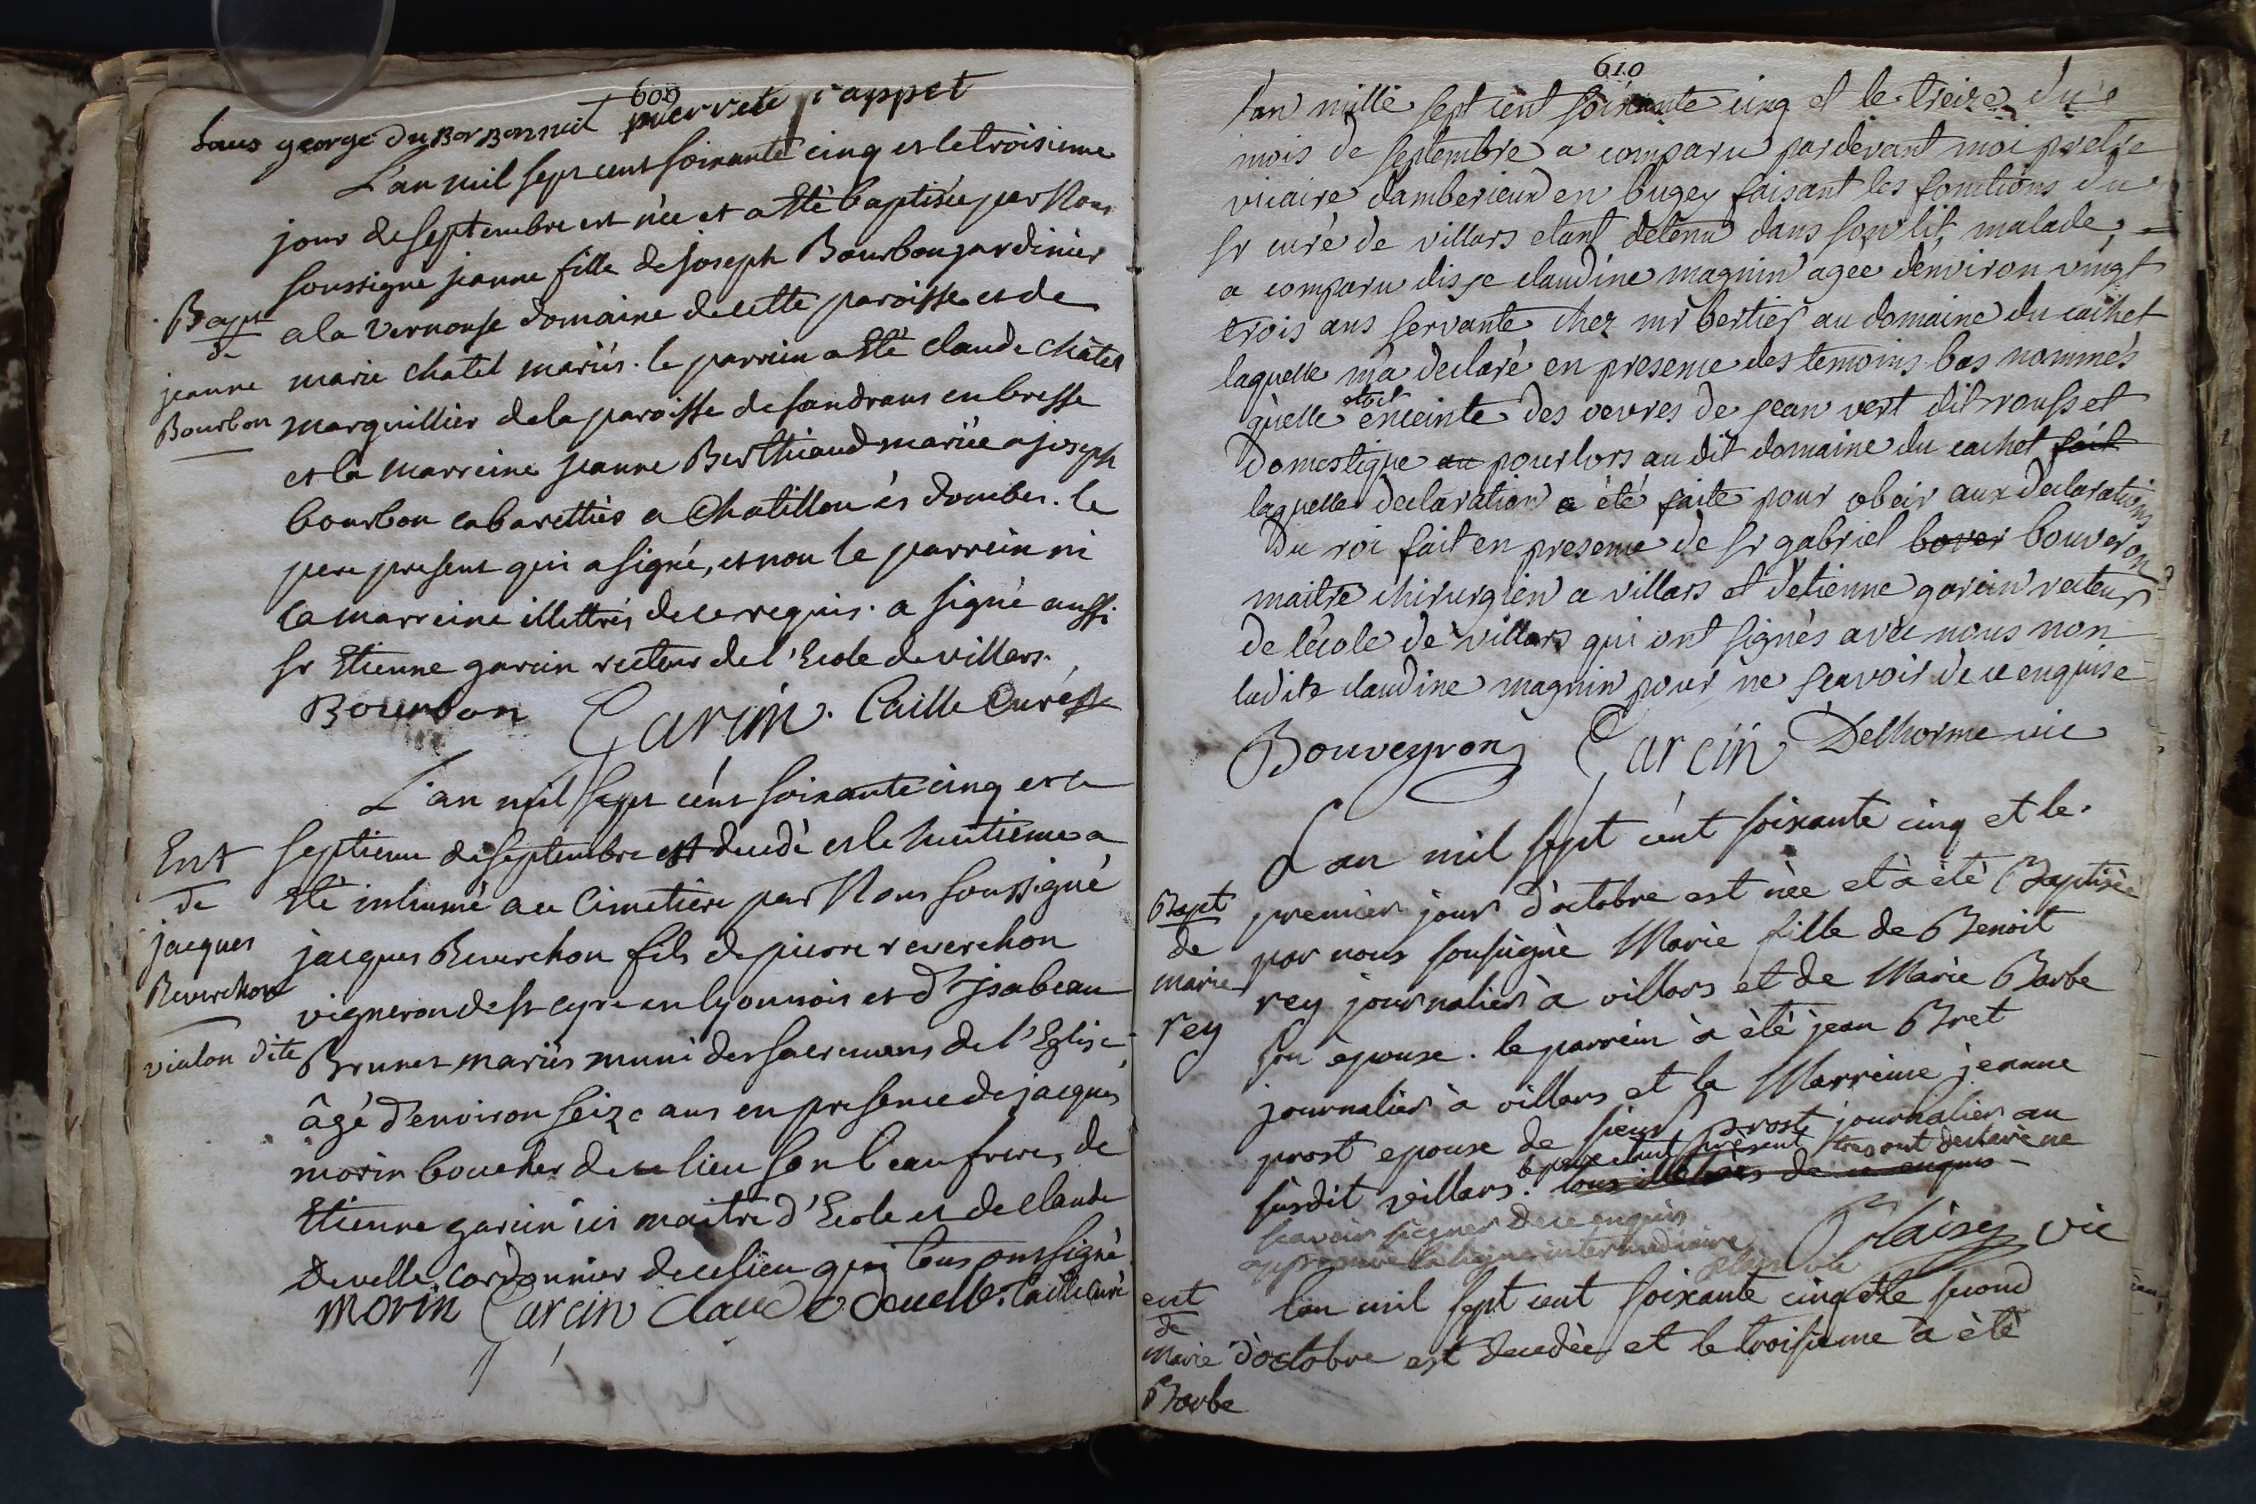 609
Louis george du Bor Bonnuit pierrete rappet
L'an mil sept cent soixante cinq et le troisieme
jour de septembre est née et a êté baptisée par Nous
soussigné jeanne fille de joseph Bourbon jardinier
a la Vernouse domaine de cette paroisse et de
marie chatel mariés. le parrein a êté claude châtel
marguillier de la paroisse de sandrans en bresse
et la marreine jeanne Berthiaud mariée a joseph
bourbon cabarettier a Chatillon és dombes. le
pere present qui a signé, et non le parrein ni
la marreine illettrés de ce requis. a signé aussi
sr Etienne garcin recteur de l'Ecole de villars.
Bapt
de
jeanne
Bourbon
Bourbon Garcin. Caille Curé
L'an mil sept cent soixante cinq et le
septieme de septembre est decedé et le huitieme a
êté inhumé au Cimetiere par Nous soussigné
jacques Reverchon fils de pierre reverchon
vigneron de st cyre en lyonnois et d'jsabeau
Brunet mariés muni des sacremens de l'Eglise
âgé d'environ seize ans en presence de jacques
morin boucher de ce lieu son beaufrere, de
Etienne garcin ici maitre d'Ecole et de claude
develle, cordonnier de ce lieu qui tous ont signé
Ent
de
jacques
Reverchon
vialon dite
Morin Garcin Claude Develle. Caille Curé
610
l'an mille sept cent soixante cinq et le treize du
mois de septembre a comparu pardevant moi pretre
vicaire d'amberieux en bugey faisant les fonctions du
sr curé de villars etant detenu dans son lit, malade,
a comparu disje claudine magnin agée d'environ vingt
trois ans servante chez mr bertier au domaine du cachet
laquelle m'a declaré en presence des temoins bas nommés
qu'elle etoit enceinte des oevres de jean vert dit rousset
domestique au pourlors au dit domaine du cachet fait
laquelle declaration a été faite pour obeir aux declarations
du roi fait en presence de sr gabriel bover bouveron
maitre chirurgien a villars et d'etienne garcin recteur
de l'école de villars qui ont signés avec nous non
ladite claudine magnin pour ne scavoir de ce enquise
Bouveyron Garcin Delhorme vic
L'an mil sept cent soixante cinq et le
premier jour d'octobre est née et à été Baptisée
par nous soussigné Marie fille de Benoit
rey journalier à villars et de Marie Barbe
son èpouse. le parrein à été jean Bret
journalier à villars et la Marreine jeanne
prost epouse de sieur prost journalier au
susdit villars. le pere etant present tres ont declaré ne
tous illetrés de ce enquis
scavoir signer de ce enquis
approuvé la ligne interlindiaire
Plaisy vic
Bapt
de
marie
rey
l'an mil sept cent soixante cinq et le second
d'octobre est decedée et le troisieme a èté
ent
de
Marie
Barbe